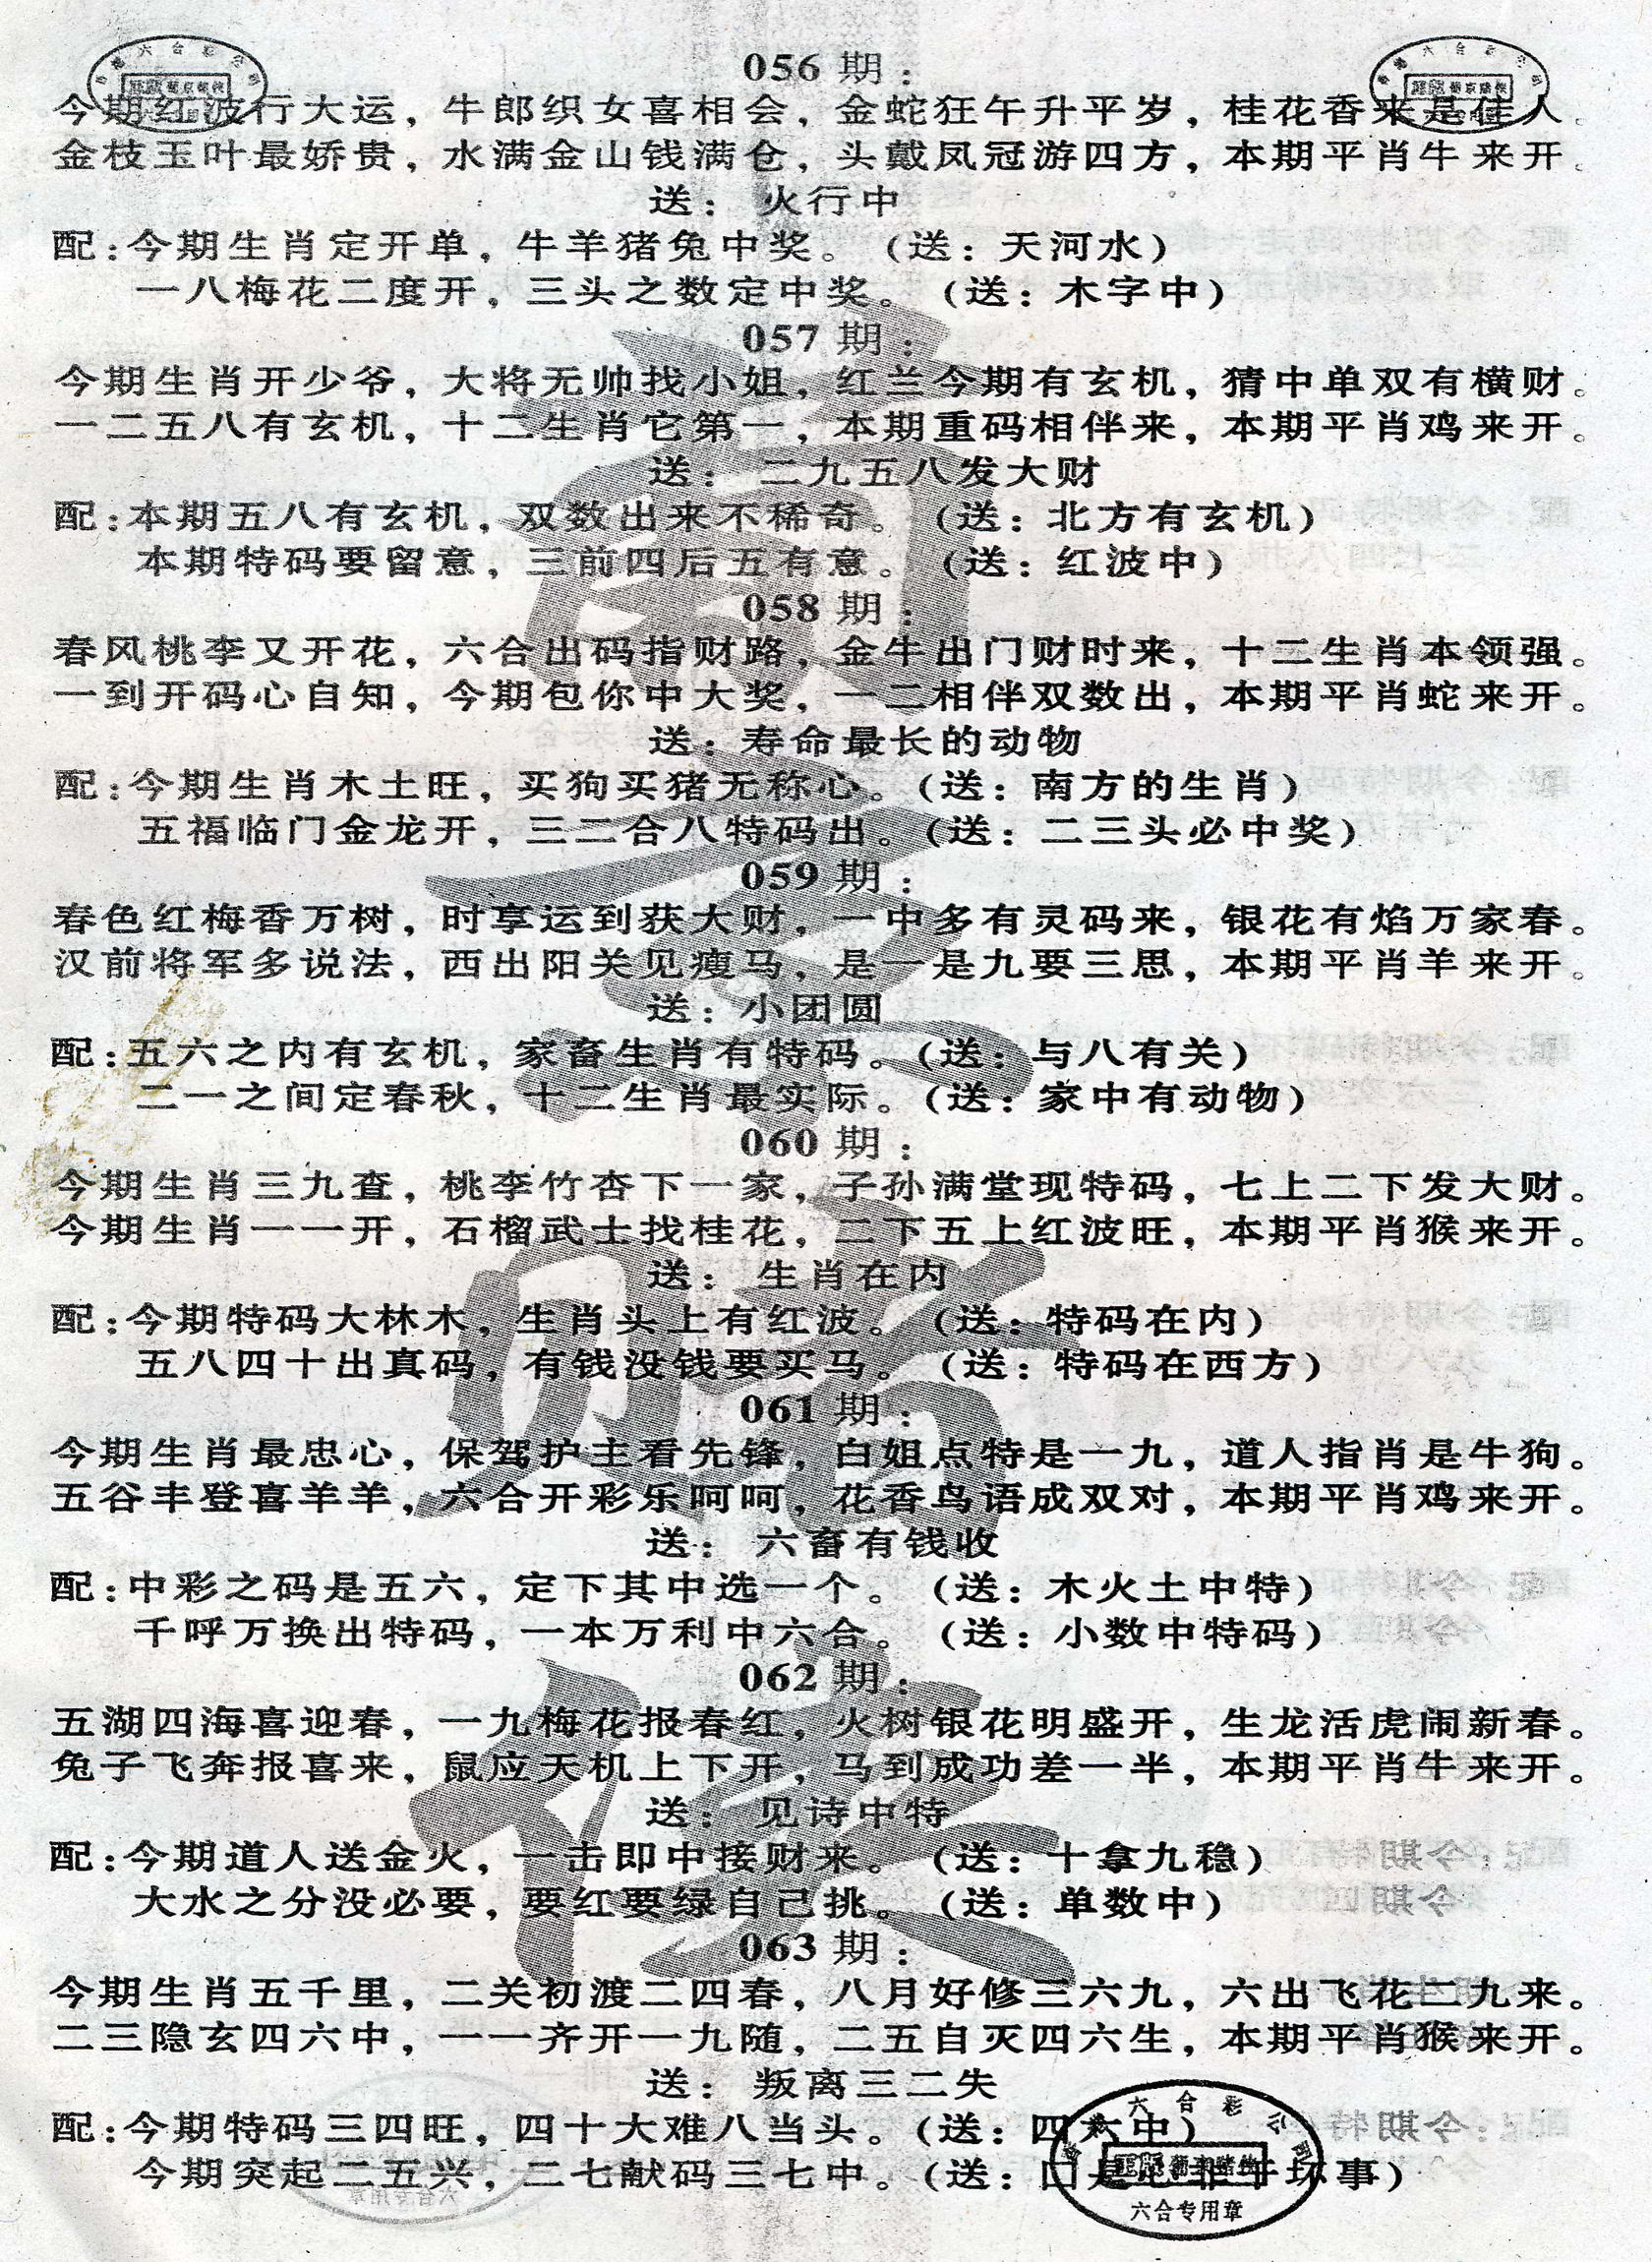 056 期：
今期红波行大运，牛郎织女喜相会，金蛇狂午升平岁，桂花香来是佳人。
金枝玉叶最娇贵，水满金山钱满仓，头戴凤冠游四方，本期平肖牛来开。
送： 火行中
配：今期生肖定开单，牛羊猪兔中奖。（送：天河水）
一八梅花二度开，三头之数定中奖。（送：木字中）
057 期：
今期生肖开少爷，大将无帅找小姐，红兰今期有玄机，猜中单双有横财。
一二五八有玄机，十二生肖它第一，本期重码相伴来，本期平肖鸡来开。
送： 二九五八发大财
配：本期五八有玄机，双数出来不稀奇。（送：北方有玄机）
本期特码要留意，三前四后五有意。（送：红波中）
058 期：
春风桃李又开花，六合出码指财路，金牛出门财时来，十二生肖本领强。
一到开码心自知，今期包你中大奖，一二相伴双数出，本期平肖蛇来开。
送：寿命最长的动物
配：今期生肖木土旺，买狗买猪无称心。（送：南方的生肖）
五福临门金龙开，三二合八特码出。（送：二三头必中奖）
059 期：
春色红梅香万树，时享运到获大财，一中多有灵码来，银花有焰万家春。
汉前将军多说法，西出阳关见瘦马，是一是九要三思，本期平肖羊来开。
送：小团圆
配：五六之内有玄机，家畜生肖有特码。（送：与八有关）
二一之间定春秋，十二生肖最实际。（送：家中有动物）
060 期：
今期生肖三九查，桃李竹杏下一家，子孙满堂现特码，七上二下发大财。
今期生肖一一开，石榴武士找桂花，二下五上红波旺，本期平肖猴来开。
送： 生肖在内
配：今期特码大林木，生肖头上有红波。（送：特码在内）
五八四十出真码，有钱没钱要买马。（送：特码在西方）
061 期：
今期生肖最忠心，保驾护主看先锋，白姐点特是一九，道人指肖是牛狗。
五谷丰登喜羊羊，六合开彩乐呵呵，花香鸟语成双对，本期平肖鸡来开。
送： 六畜有钱收
配：中彩之码是五六，定下其中选一个。（送：木火土中特）
千呼万换出特码，一本万利中六合。（送：小数中特码）
062 期：
五湖四海喜迎春，一九梅花报春红，火树银花明盛开，生龙活虎闹新春。
兔子飞奔报喜来，鼠应天机上下开，马到成功差一半，本期平肖牛来开。
送： 见诗中特
配：今期道人送金火，一击即中接财来。（送：十拿九稳）
大水之分没必要，要红要绿自己挑。（送：单数中）
063 期：
今期生肖五千里，二关初渡二四春，八月好修三六九，六出飞花二九来。
二三隐玄四六中，一一齐开一九随，二五自灭四六生，本期平肖猴来开。
送： 叛离三二失
配：今期特码三四旺，四十大难八当头。（送：四六中）
今期突起二五兴，二七献码三七中。（送：口是心非干坏事）
六合专用章